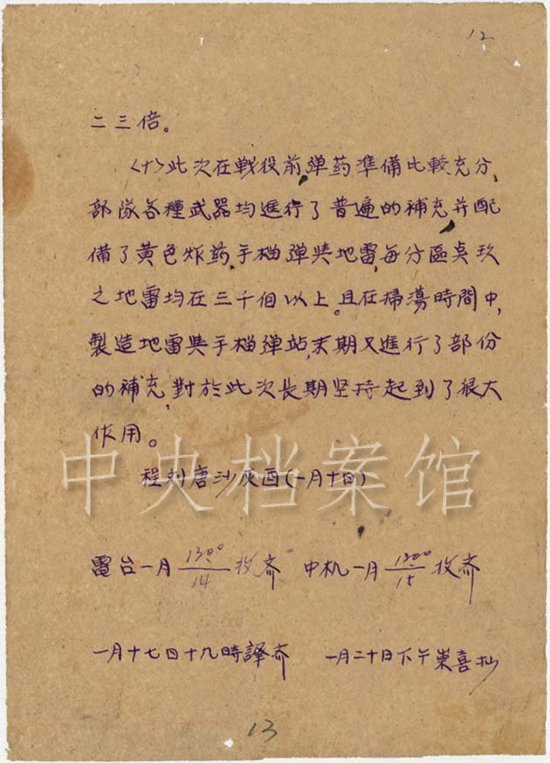 12
二三倍。
〈十〉此次在戰役前弹药準備比較充分,
部隊各種武器均進行了普遍的補充并配
備了黄色炸药,手榴弹與地雷,每分區
之地雷均在三千個以上。且在掃蕩時間中,
製造地雷與手榴弹站,末期又進行了部份
的補充,對於此次長期坚持起到了很大
作用。
中央档案馆
程刘唐沙灰酉(一月十日)
電台一月1300/14收齐 中机一月1300/15收齐
一月十七日十九時譯齐 一月二十日下午崇喜抄
13